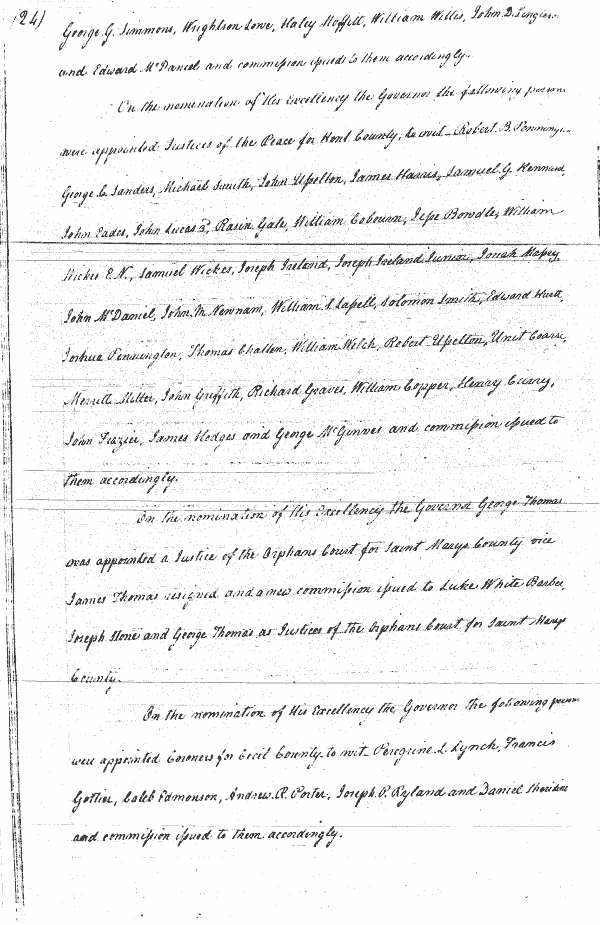 (24)
George G. Simmons, Wrightson Lowe, Haley Moffett, William Willis, John D.
and Edward McDaniel and commission issued to them accordingly.
On the nomination of His Excellency the Governor the following person
were appointed Justices of the Peace for Kent County, to wit - Robert B.
George C. Sanders, Michael Smith, John Usselton, James Harris, Samuel G. Kennard,
John Eades, John Lucas 3d, Rasin Gale, William Cobourn, Jesse Bowdle, William
Wickes E.N., Samuel Wickes, Joseph Ireland, Joseph Ireland Junior, Josiah Massey,
John McDaniel, John M. Newnam, William S. Lassell, Solomon Smith, Edward Hurtt,
Joshua Pennington, Thomas Challen, William Welch, Robert Usselton, Unit
Merritt Miller, John Griffith, Richard Graves, William Copper, Henry Curry,
John Frazier, James Hodges and George McGinnes and commission issued to
them accordingly.
On the nomination of His Excellency the Governor George Thomas
was appointed a Justice of the Orphans Court for Saint Marys County vice
James Thomas resigned and a new commission issued to Luke White Barber,
Joseph Stone and George Thomas as Justices of the Orphans Court for Saint Marys
County.
On the nomination of His Excellency the Governor the following person
were appointed Coroners for Cecil County to wit Peregrine L. Lynch, Francis
Gottier, Caleb Edmonson, Andrew R. Porter, Joseph P. Ryland and Daniel
and commission issued to them accordingly.